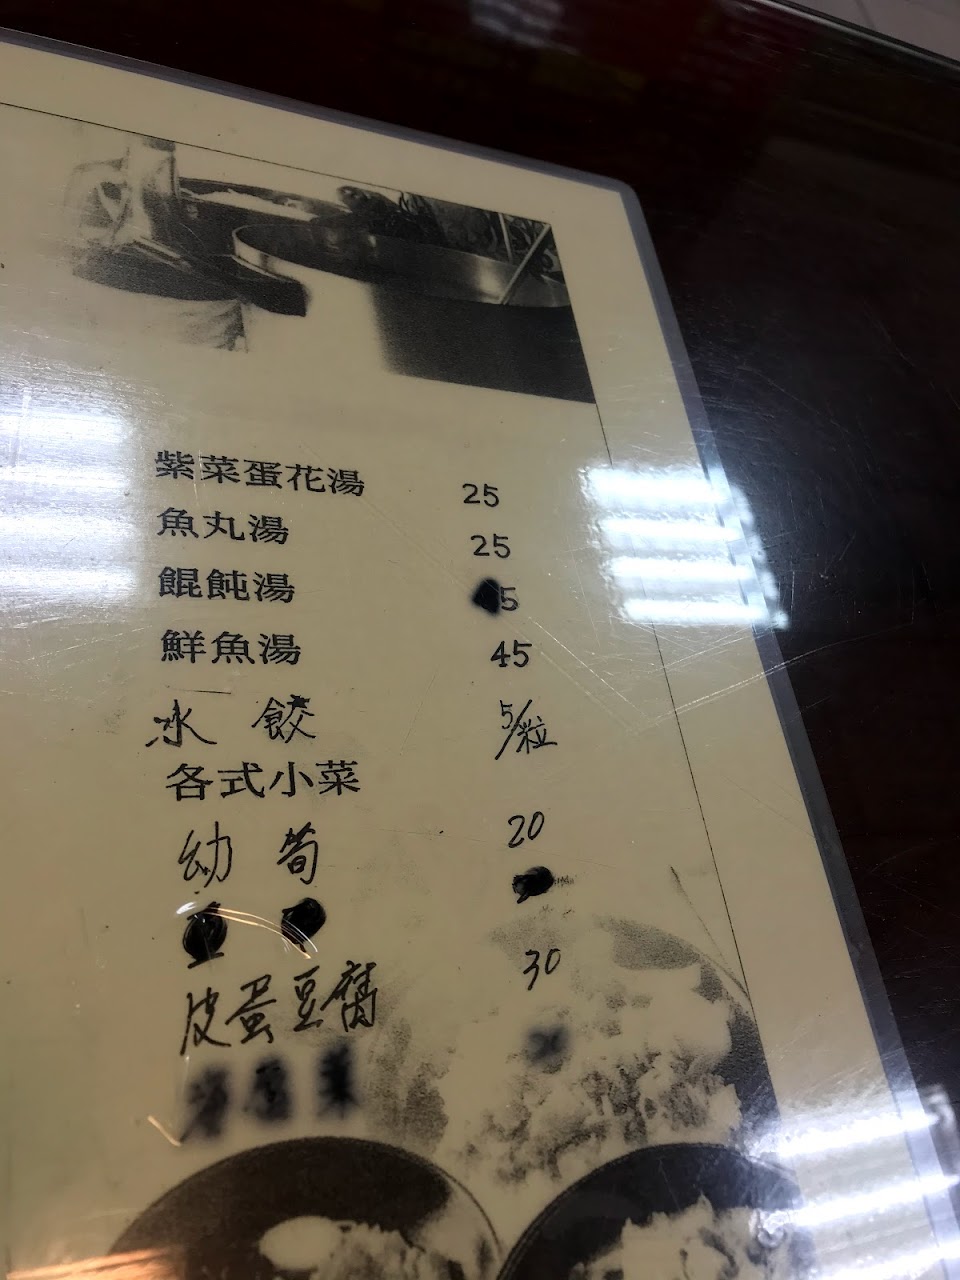 紫菜蛋花湯 25
魚丸湯 25
餛飩湯 5
鮮魚湯 45
水餃 5/粒
各式小菜
幼筍 20
皮蛋豆腐 30